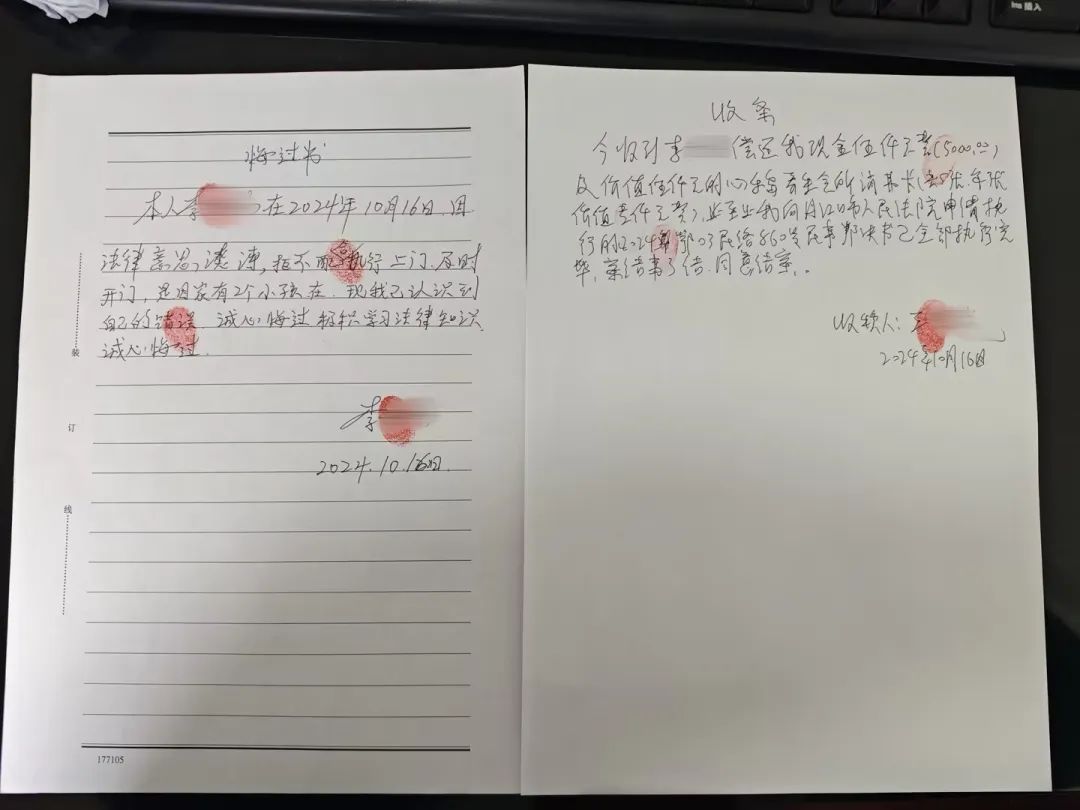 Ins 插入
悔过书
本人李 在2024年10月16日因
法律意思淡薄，拒不配合执行上门及时
开门，是因家有2个小孩在．现我已认识到
自己的错误．诚心悔过积极学习法律知识
诚心悔过．
李
2024.10.16日．
装
订
线
177105
收条
今收到李 偿还我现金伍仟元整(5000.00)
及价值伍仟元的 消费卡(共5张．每张
价值壹仟元整)，至此我向丹江口市人民法院申请执
行的2024鄂03民终860号民事判决书已全部执行完
毕．案结事了结．同意结案．
收领人：王
2024年10月16日